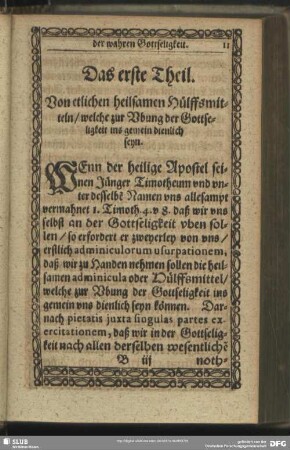 der wahren Gottseligkeit. 11
Das erste Theil.
Von etlichen heilsamen Hülffsmit-
teln / welche zur Vbung der Gottse-
ligkeit ins gemein dienlich
seyn.
WEnn der heilige Apostel sei-
nen Jünger Timotheum vnd vn-
ter desselbẽ Namen vns allesampt
vermahnet 1. Timoth. 4. v. 8. daß wir vns
selbst an der Gottseligkeit vben sol-
len / so erfordert er zweyerley von vns /
erstlich adminiculorum usurpationem,
daß wir zu Handen nehmen sollen die heil-
samen adminicula oder Hülffsmittel /
welche zur Vbung der Gottseligkeit ins
gemein vns dienlich seyn können. Dar-
nach pietatis juxta singulas partes ex-
ercitationem, daß wir in der Gottselig-
keit nach allen derselben wesentlichẽ
B iij noth-
SLUB
DFG